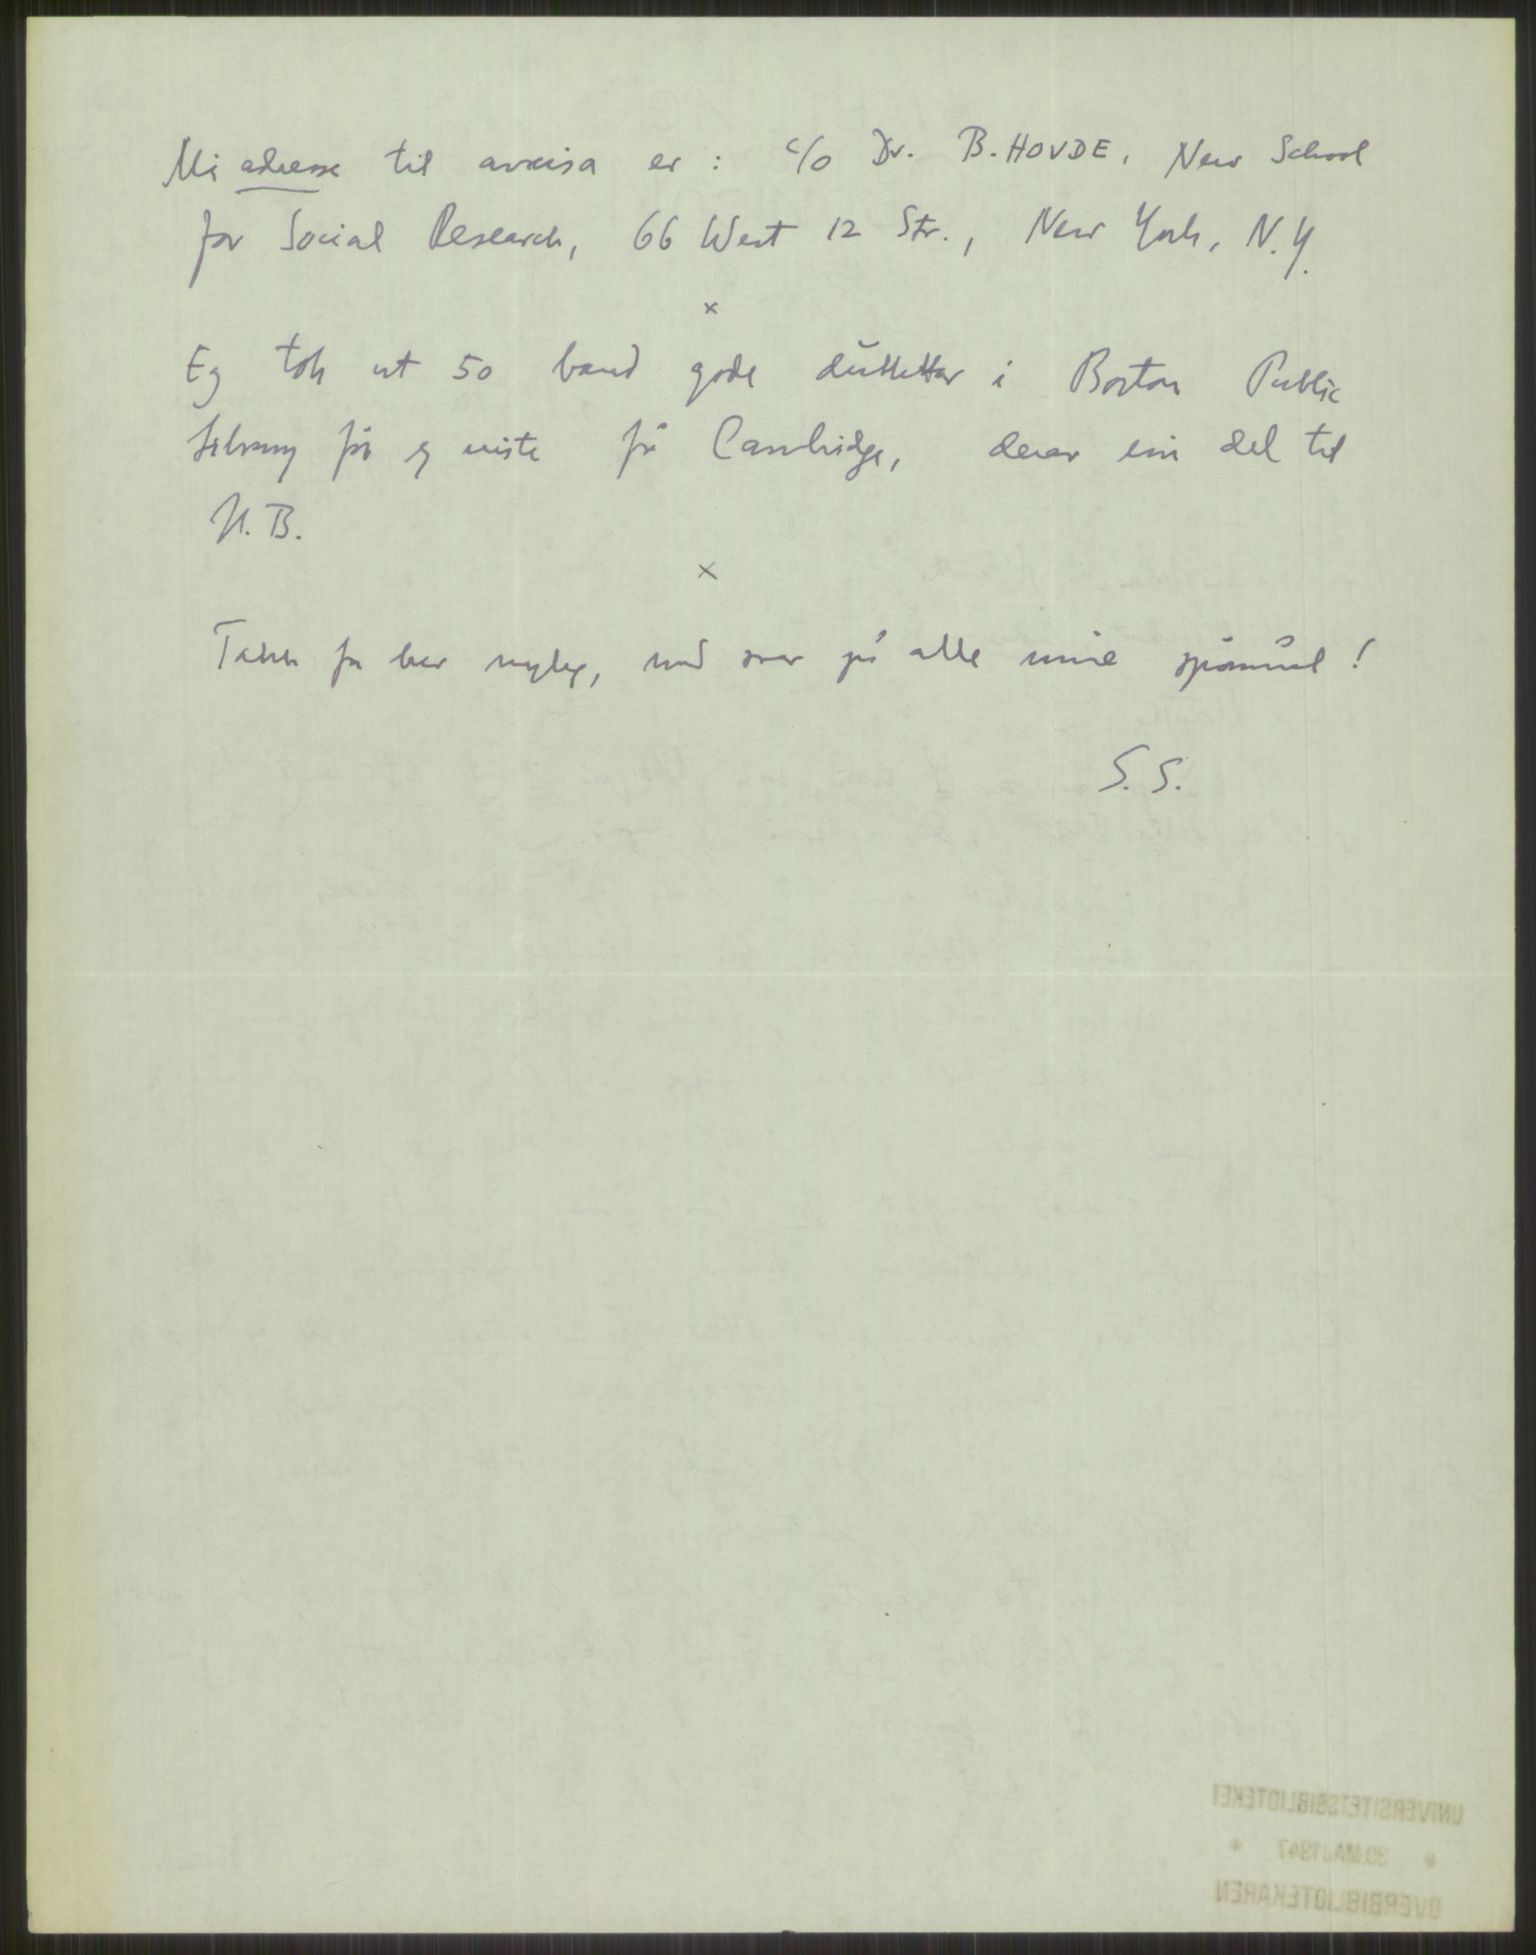 Mi adresse til avreisa er : c/o Dr. B. HOVDE, New School
for Social Research, 66 West 12 Str., New York, N.Y.
x
Eg tok ut 50 band gode dublettar i Boston Public
Library før eg reiste frå Cambridge, derav ein del til
U.B.
x
Takk for brev nyleg, med svar på alle mine spørsmål!
S. S.
UNIVERSITETSBIBLIOTEKET
* 30.MAI.1947 *
OVERBIBLIOTEKAREN